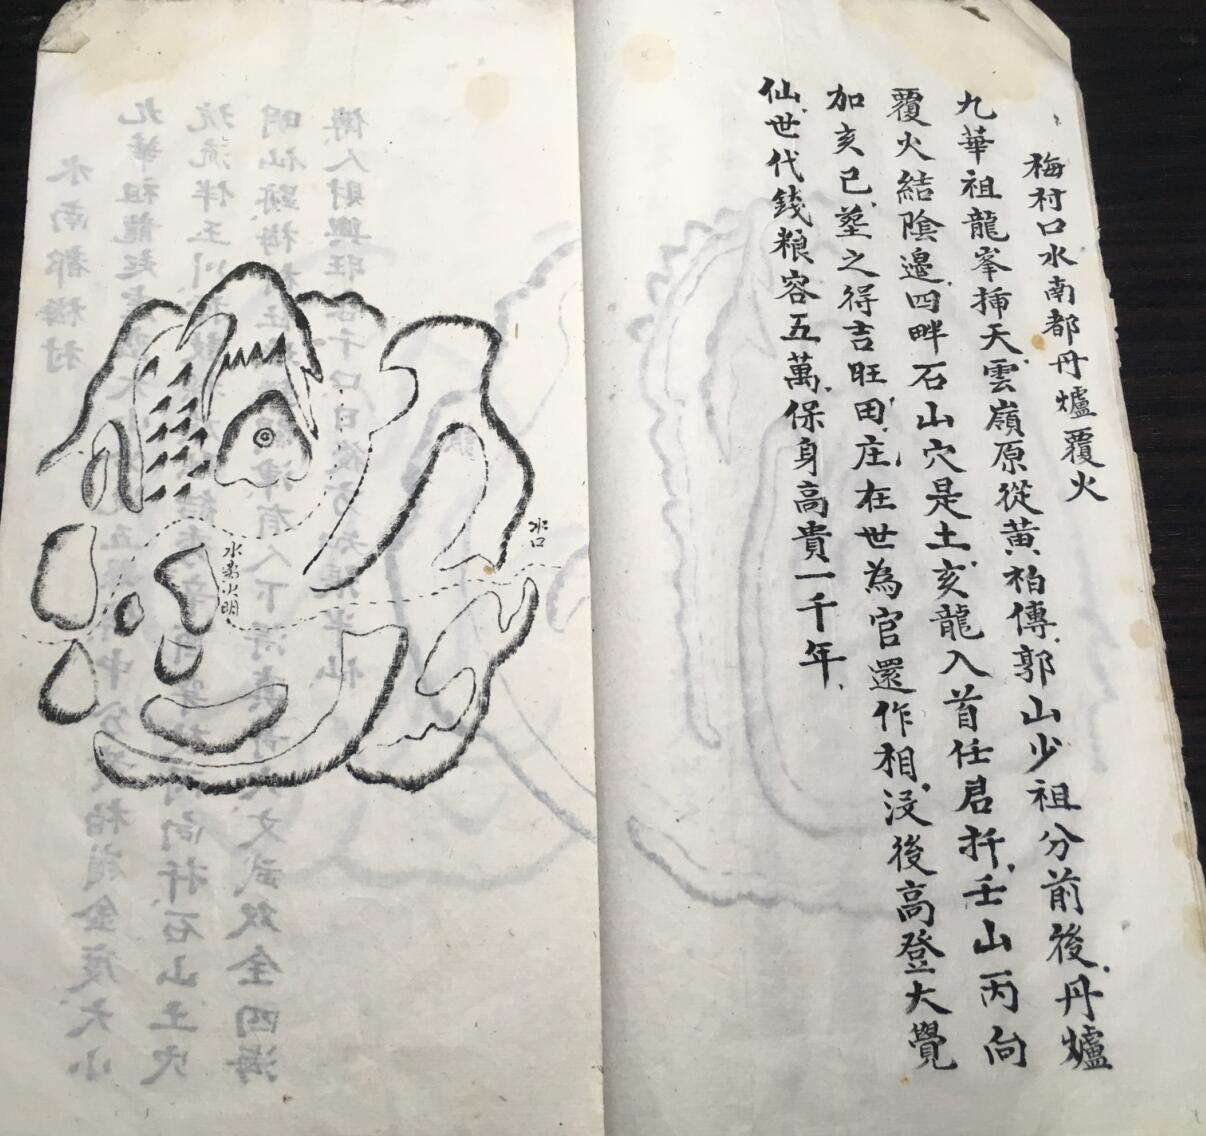 梅村口水南都丹爐覆火
九華祖龍峯揷天雲嶺原從黃柏傳郭山少祖分前後丹爐
覆火結陰邉四畔石山穴是土亥龍入首任君扦壬山丙向
加亥巳塟之得吉旺田庄在世為官還作相没後高登大覺
仙世代錢粮容五萬保身高貴一千年
水口
水
明